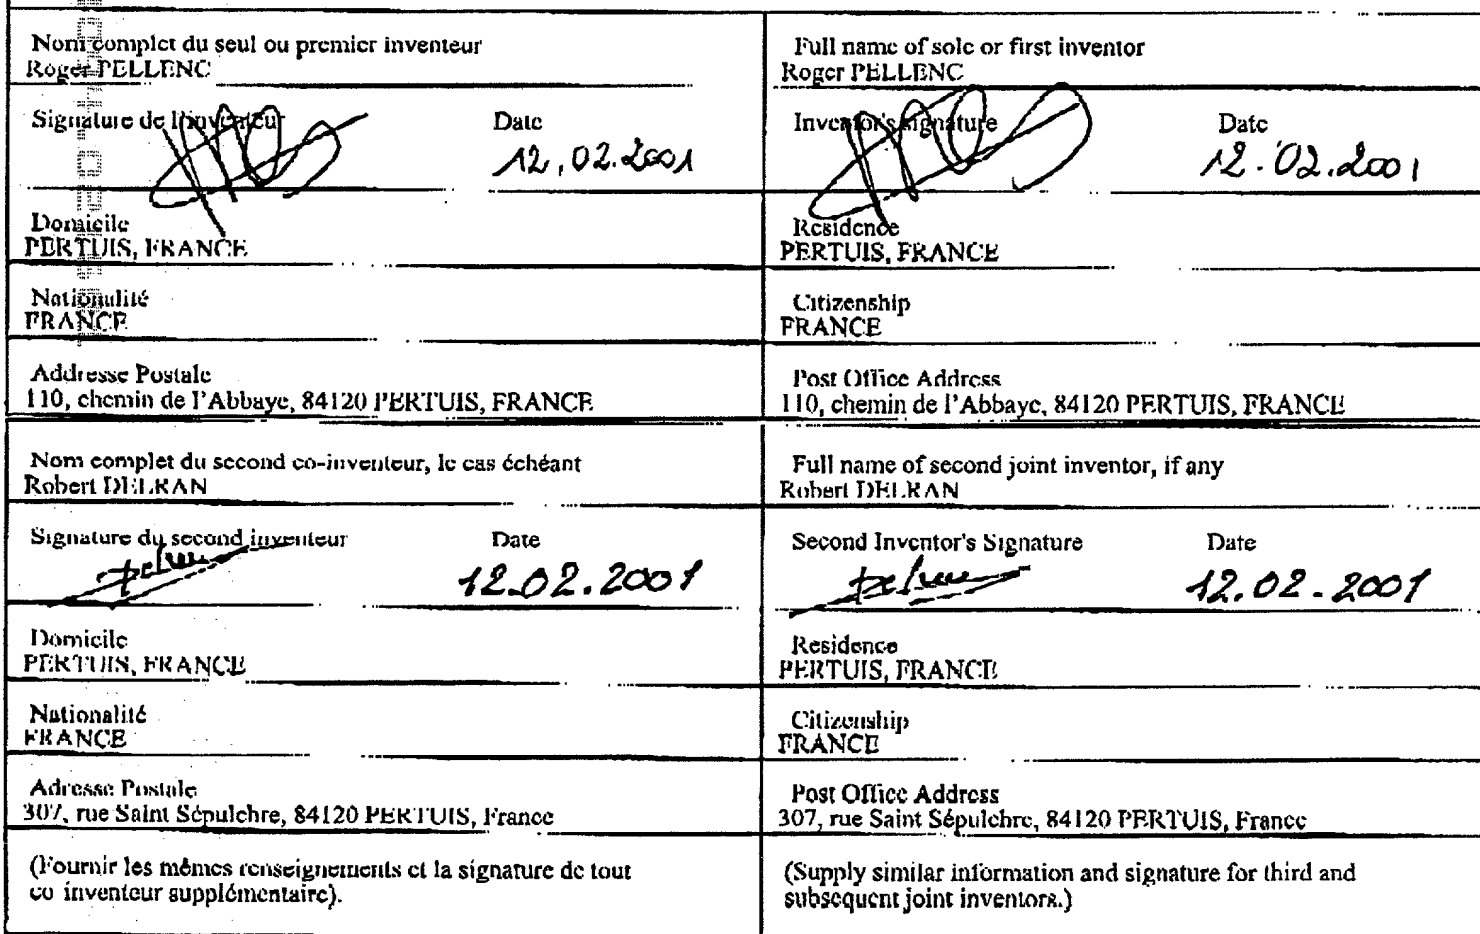 Nom complet du seul ou premier inventeur
Roger PELLENC
Signature de l'inventeur Date
12.02.2001
Domicile
PERTUIS, FRANCE
Nationalité
FRANCE
Addresse Postale
110, chemin de l'Abbaye, 84120 PERTUIS, FRANCE
Nom complet du second co-inventeur, le cas échéant
Robert DELRAN
Signature du second inventeur Date
12.02.2001
Domicile
PERTUIS, FRANCE
Nationalité
FRANCE
Adresse Postale
307, rue Saint Sépulchre, 84120 PERTUIS, France
(Fournir les mêmes renseignements et la signature de tout
co inventeur supplémentaire).
Full name of sole or first inventor
Roger PELLENC
Inventor's signature Date
12.02.2001
Residence
PERTUIS, FRANCE
Citizenship
FRANCE
Post Office Address
110, chemin de l'Abbaye, 84120 PERTUIS, FRANCE
Full name of second joint inventor, if any
Robert DELRAN
Second Inventor's Signature Date
12.02.2001
Residence
PERTUIS, FRANCE
Citizenship
FRANCE
Post Office Address
307, rue Saint Sépulchre, 84120 PERTUIS, France
(Supply similar information and signature for third and
subsequent joint inventors.)